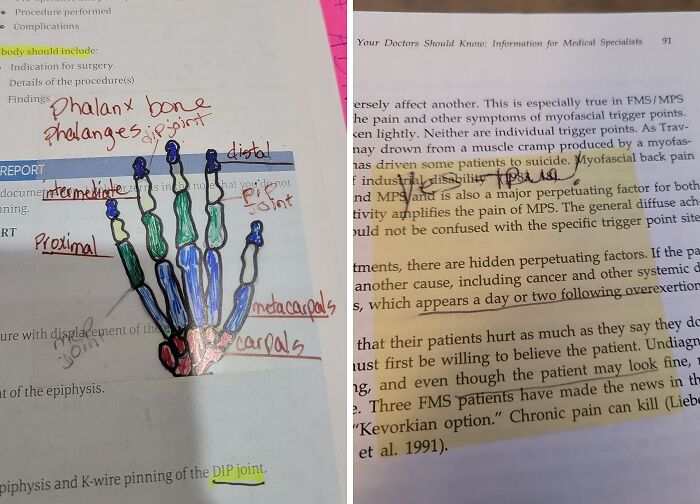 • Procedure performed
• Complications
body should include:
• Indication for surgery
Details of the procedure(s)
Findings
Phalanx bone
phalanges
dip joint
REPORT
distal
intermediate
terms in the notes that you do not
ning.
pip
joint
RT
Proximal
metacarpals
ure with displacement of the
mcp
joint
carpals
nt of the epiphysis.
piphysis and K-wire pinning of the DIP joint.
Your Doctors Should Know: Information for Medical Specialists 91
versely affect another. This is especially true in FMS/MPS
he pain and other symptoms of myofascial trigger points.
ken lightly. Neither are individual trigger points. As Trav-
nay drown from a muscle cramp produced by a myofas-
has driven some patients to suicide. Myofascial back pain
f industrial disability
Yes
nd MPS, and is also a major perpetuating factor for both
tivity amplifies the pain of MPS. The general diffuse ach-
ould not be confused with the specific trigger point site
tments, there are hidden perpetuating factors. If the pa
another cause, including cancer and other systemic d
s, which appears a day or two following overexertion
that their patients hurt as much as they say they do
ust first be willing to believe the patient. Undiagn
ng, and even though the patient may look fine,
e. Three FMS patients have made the news in th
"Kevorkian option." Chronic pain can kill (Liebe
et al. 1991).